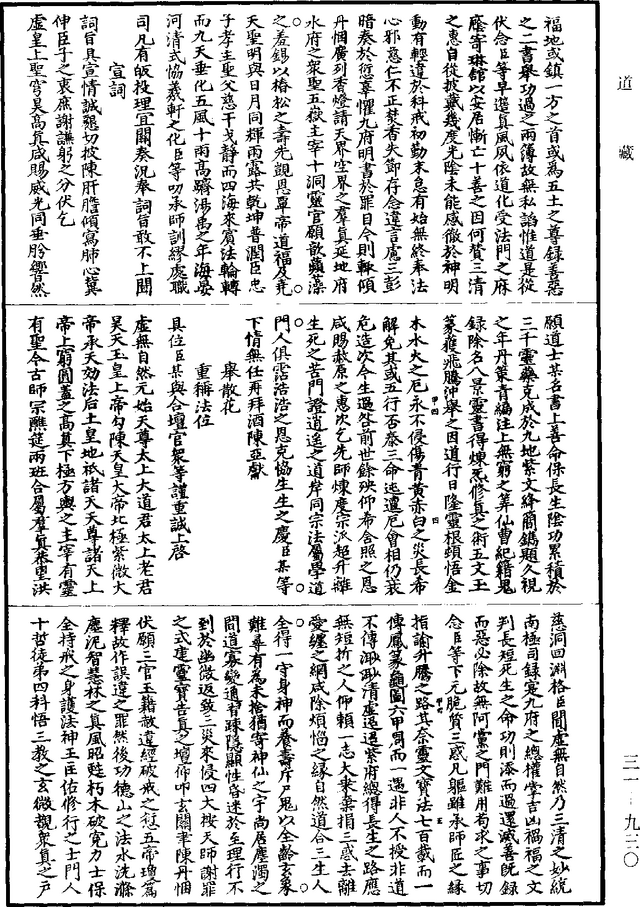 道藏
福地或鎮一方之首或為五土之尊録善惡
之二書舉功過之兩簿故無私謟惟道是從
伏念臣等早還真風夙依道化受法門之庥
廕寄琳館以安居慚亡十善之因何贊三清
之惠自從披戴幾度光陰未能感徹於神明
動有輕違於科戒初勤末怠有始無終奉法
心邪意仁不正焚香失節存念違言慮三彭
暗奏於愆辜懼九府明書於罪目今則輙傾
丹悃廣列香燈請天界空界之羣真延地府
水府之衆聖五嶽主宰十洞靈官願歆蘋藻
之羞錫以椿松之壽先觀恩覃帝道福及堯
天聖明與日月同輝雨露共乾坤普潤臣忠
子孝主聖父慈干戈靜而四海來賓法輪轉
而九天垂化五風十雨高躋湯禹之年海晏
河清式協羲軒之化臣等叨承師訓繆處職
司凡有皈投理宜關奏況奉詞旨敢不上聞
宣詞
詞旨具宣情誠懇切披陳肝膽傾寫肺心冀
伸臣子之衷庶謝譙躬之分伏乞
虛皇上聖穹昊高真咸賜威光同垂肸蠁然
願道士某名書上善命保長生陰功累積於
三千靈藥克成於九地紫文絳簡鐫題久視
之年丹策青編注上無窮之筭仙曹紀籍鬼
録除名八景靈書得煉炁修真之術五文玉
篆獲飛騰沖舉之因道行日隆靈根頓悟金
木水火之厄永不侵傷青黃赤白之災長希
解免其或五行否泰三命迍邅厄會相仍衰
危造次今生過咎前世餘殃仰希含照之恩
咸賜赦原之惠次乞先師煉度宗派超升離
生死之苦門證逍遙之道岸同宗法屬學道
門人俱霑浩浩之恩克協生生之慶臣某等
下情無任再拜酒陳亞獻
舉散花
重稱法位
具位臣某與合壇官衆等謹重誠上啓
虛無自然元始天尊太上大道君太上老君
昊天玉皇上帝勾陳天皇大帝北極紫微大
帝承天効法后土皇地祇諸天天尊諸天上
帝上窮圓蓋之高真下極方輿之主宰有靈
有聖今古師宗醮筵兩班合屬羣真恭望洪
慈洞回淵格臣聞虛無自然乃三清之妙統
南極司録寔九府之總權掌吉凶禍福之文
判長短死生之命功則添而過還滅善旣録
而惡必除故無阿黨之門難用苟求之事切
念臣等下元脆質三惑凡軀雖承師匠之緣
指諭升騰之路其柰靈文寶法七百載而一
傳鳳篆龜圖六甲周而一遇非人不授非道
不傳溯溯清虛遐遐紫府纔得長生之路應
無短折之人仰賴一志大乘棄捐三惑去離
愛纏之綱咸除煩惱之緣自然道合三生人
全得一守身神而養壽斥尸鬼以全齡玄象
難尋有為未捨猶寄神仙之宇尚居塵濁之
間道寡變通昔疎隱顯性昏迷於至理行不
到於幽微返致三災來侵四大按天師謝罪
之式建靈寶告真之壇仰叩玄關聿陳丹悃
伏願三官玉籍赦違經破戒之愆五帝瓊篇
釋故作誤違之罪然後功德山之法水洗滌
塵泥智慧林之真風昭甦朽木破寃力士保
全持戒之身護法神王匡佑修行之士門人
十哲徒弟四科悟三教之玄微覩衆真之戶
三一—九三〇